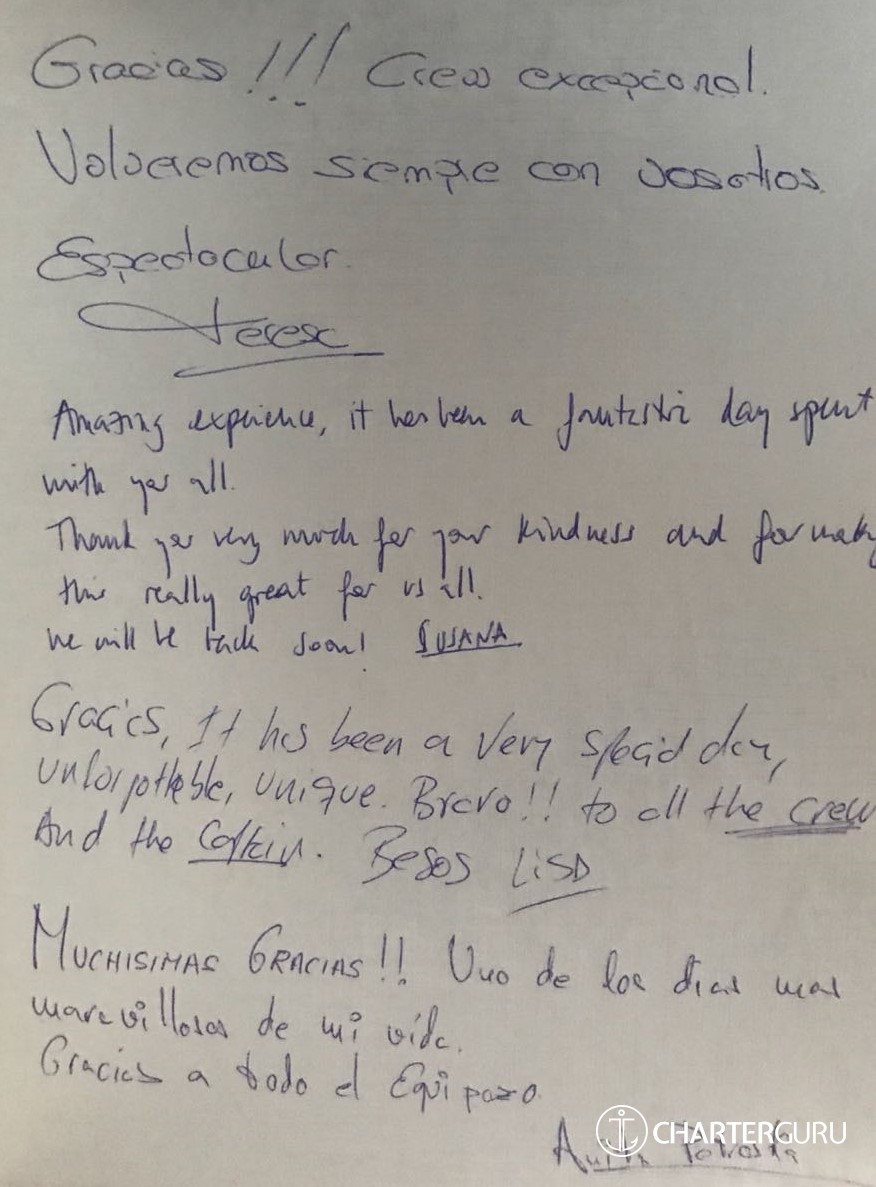 Gracias!!! Crew excepcional.
Volveremos siempre con vosotros.
Espectacular.
Teresa
Amazing experience, it has been a fantastic day spent
with you all.
Thank you very much for your kindness and for making
this really great for us all.
We will be back soon! SUSANA.
Gracias, It has been a very special day,
unforgottable, unique. Bravo!! to all the crew
And the Captain. Besos LISA
MUCHISIMAS GRACIAS!! Uno de los dias mas
maravillosos de mi vida.
Gracias a todo el Equipazo.
CHARTERGURU